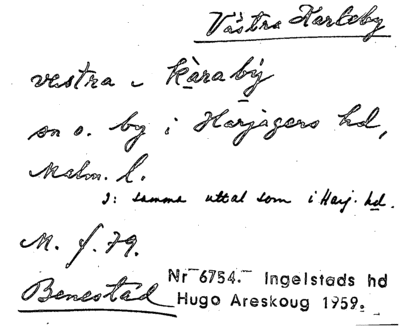 Västra Karleby
vestra ~ kàrabý
sn o. by i Harjagers hd,
Malm. l.
ɔ: samma uttal som i Harj. hd.
M. f. 79.
Nr 6754. Ingelstads hd
Benestad Hugo Areskoug 1959.